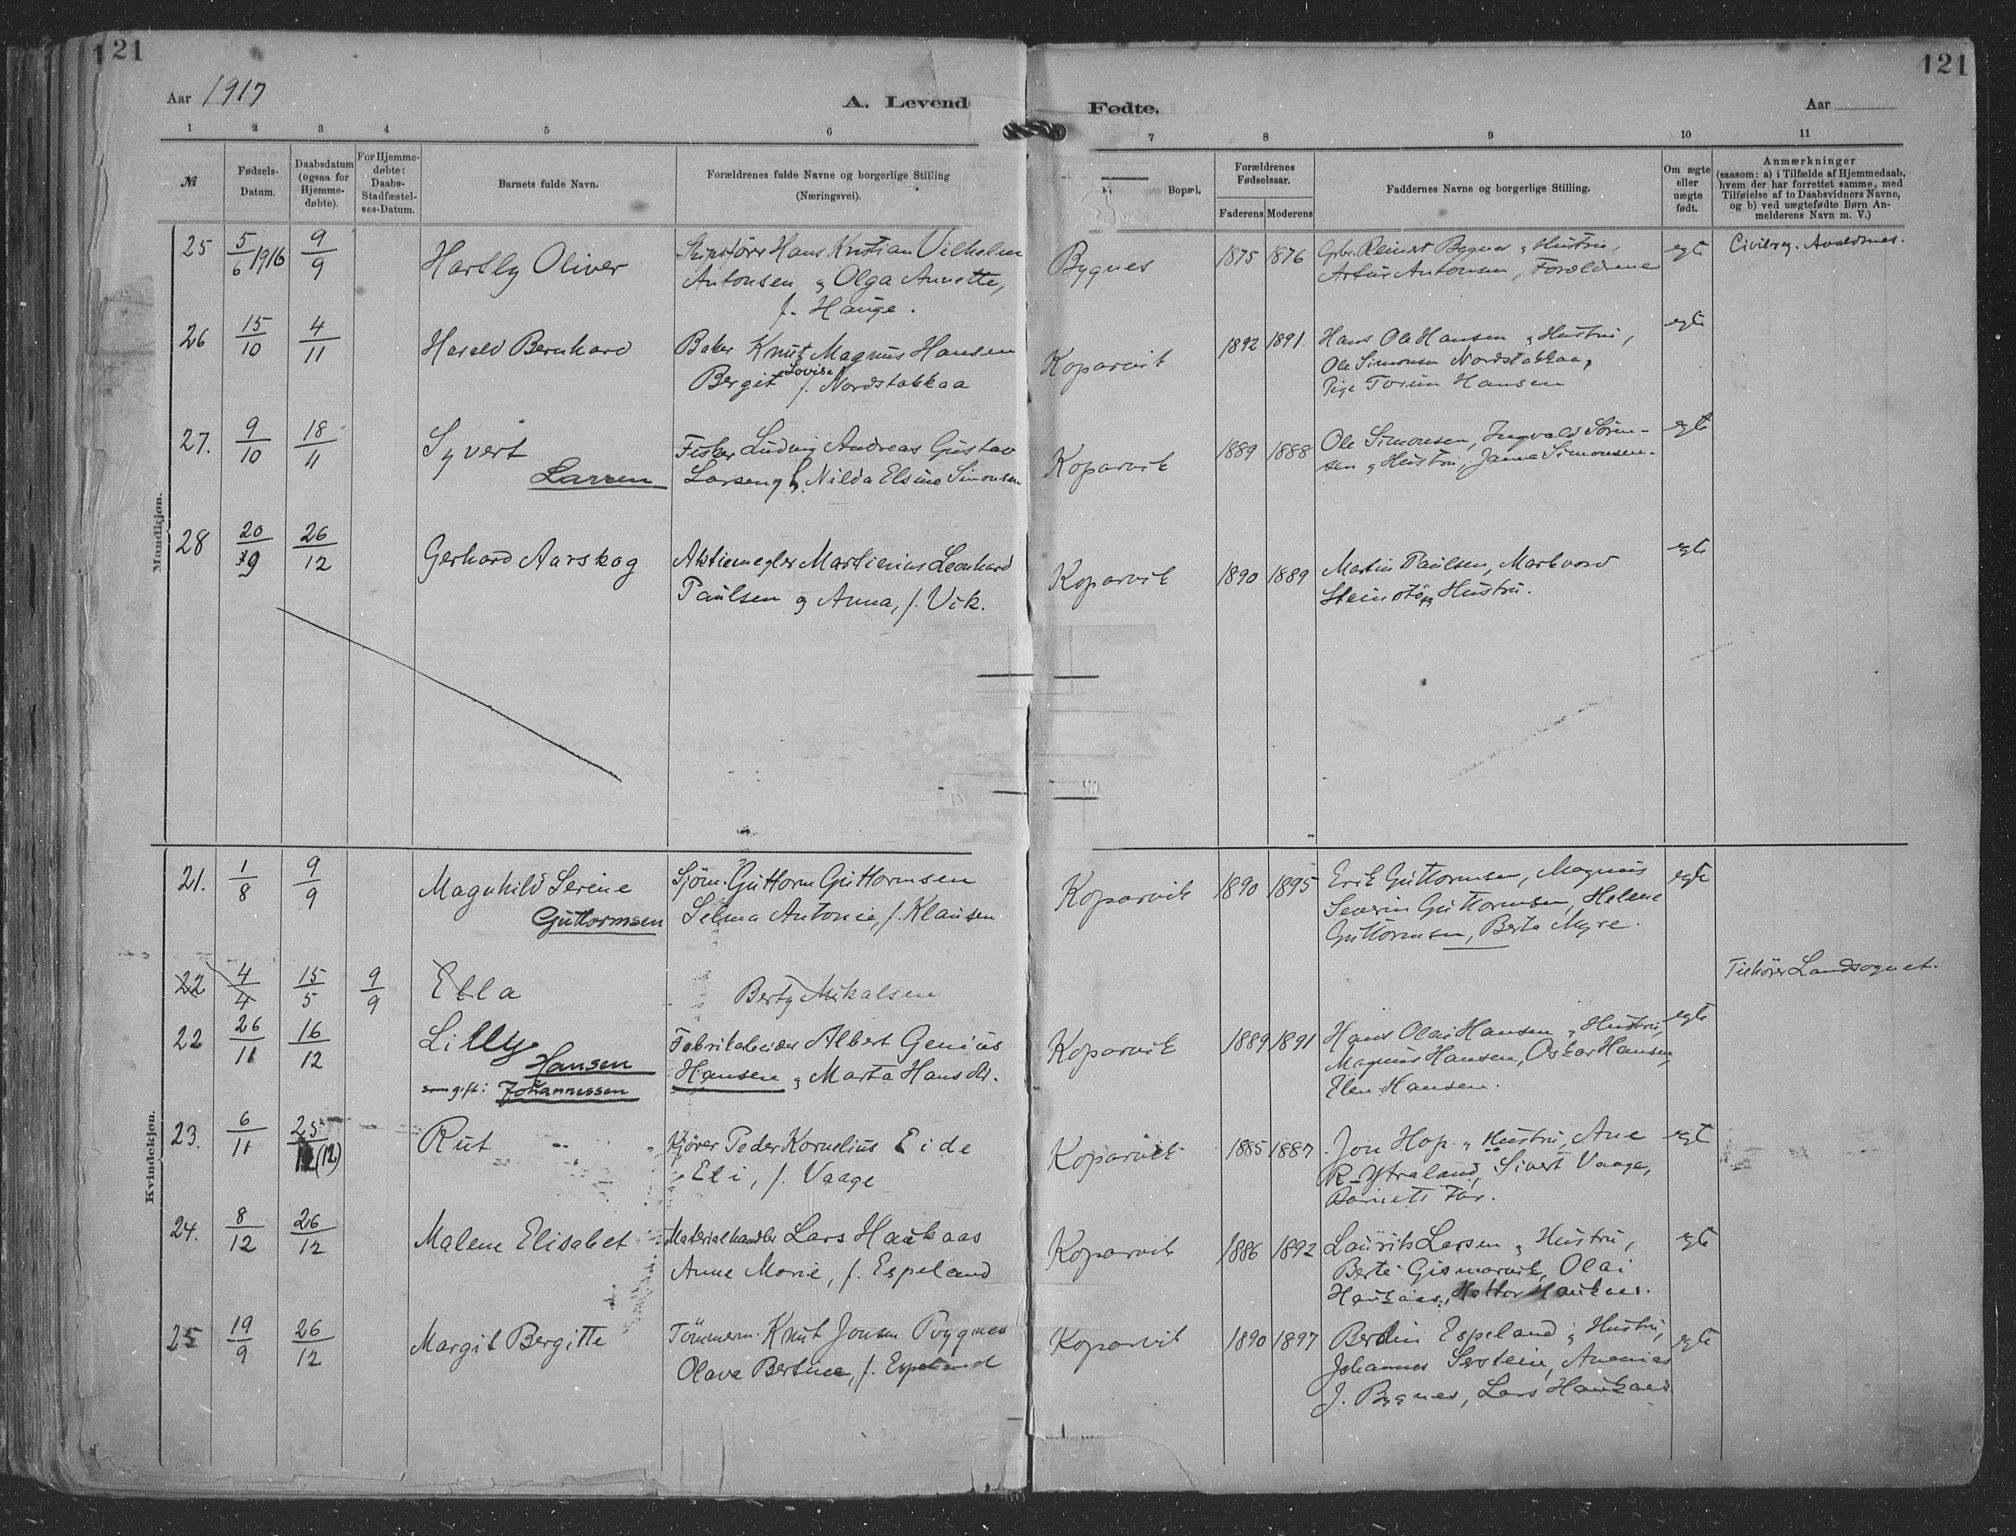 121
121
Aar 1917
A. Levend
Fødte.
Aar
1 2 3 4 5 6 7 8 9 10 11
№
Fødsels-
Datum.
Daabsdatum
(ogsaa for
Hjemme-
døbte).
For Hjemme-
døbte:
Daabs-
Stadfæstel-
ses-Datum.
Barnets fulde Navn.
Forældrenes fulde Navne og borgerlige Stilling
(Næringsvei).
Bopæl.
Forældrenes
Fødselsaar.
Faderens Moderens
Faddernes Navne og borgerlige Stilling.
Om ægte
eller
uægte
født.
Anmærkninger
(saasom: a) i Tilfælde af Hjemmedaab,
hvem der har forrettet samme, med
Tilføielse af to Daabsvidners Navne,
og b) ved uægtefødte Børn An-
melderens Navn m. V.)
Mandkjøn.
25 5/6 1916 9/9 Hartly Oliver Skipsfører Hans Kristian Vilhelm Bygnes 1875 1876 Gbr. Reinert Bygnes og Hustru, egte Civilreg. Avaldsnes.
Antonsen og Olga Annette, Artur Antonsen, Forældrene
f. Hauge.
26 15/10 4/11 Harald Bernhard Baker Knut Magnus Hansen Koparvik 1892 1891. Hans Ole Hansen og Hustru, egte
Bergit Lovise f. Nordstokkaa Ole Simonsen Nordstokkaa,
Pige Torine Hansen
27. 9/10 18/11 Syvert Fisker Ludvig Andreas Gustav Koparvik 1889 1888 Ole Simonsen, Ingvald Søren- egte
Larsen Larsen og Nilda Elsine Simonsen sen og Hustru, Janna Simonsen.
28 20/9 26/12 Gerhard Aarskog Aktiemegler Martinius Leonhard Koparvik 1890 1889 Martin Paulsen, Markvard egte
Paulsen og Anna, f. Vik. Steinstø og Hustru.
Kvindekjøn.
21. 1/8 9/9 Magnhild Serine Sjøm. Guttorm Guttormsen Koparvik 1890 1895 Erik Guttormsen, Magnus egte
Guttormsen Selma Antonie, f. Klausen Severin Guttormsen, Helene
Guttormsen, Berta Myre.
22 4/4 15/5 9/9 Ella Berty Mikalsen Tilhører Landsognet.
22 26/11 16/12 Lilly Fabrikarbeider Albert Genius Koparvik 1889 1891 Hans Olai Hansen og Hustru, egte
Hansen Hansen og Marta Hansdt. Magnus Hansen, Oskar Hansen,
gift: Johannessen Elen Hansen.
23. 6/11 25/12 (12) Rut Kjører Peder Kornelius Eide Koparvik 1885 1887 Jon Hop og Hustru, Ane egte
Eli, f. Vaage R. Ytraland, Sivert Vaage,
Barnets Far.
24. 8/12 26/12 Malene Elisabet Materialhandler Lars Haukaas Koparvik 1886 1892 Laurits Larsen og Hustru, egte
Anne Marie, f. Espeland Berte Gismarvik, Olai
Haukaas, Haukaas.
25 19/9 26/12 Margit Bergitte Tømmerm. Knut Jonsen Bygnes Koparvik 1890 1897 Berdin Espeland og Hustru, egte
Olava Bertine, f. Espeland Johannes Ananias
J. Bygnes, Lars Haukaas.